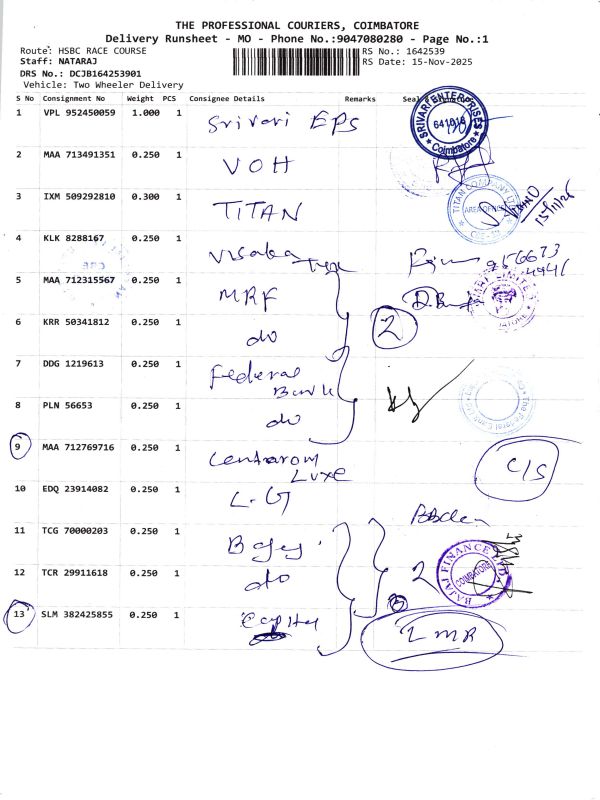 THE PROFESSIONAL COURIERS, COIMBATORE
Delivery Runsheet - MO - Phone No.:9047080280 - Page No.:1
Route: HSBC RACE COURSE RS No.: 1642539
Staff: NATARAJ RS Date: 15-Nov-2025
DRS No.: DCJB164253901
Vehicle: Two Wheeler Delivery
S No Consignment No Weight PCS Consignee Details Remarks
1 VPL 952450059 1.000 1 Srivari EPS
SRIVARI ENTERPRISES Coimbatore
2 MAA 713491351 0.250 1 VOH
3 IXM 509292810 0.300 1 TITAN
TITAN COMPANY LTD AREA OFFICE
15/11/25
4 KLK 8288167 0.250 1 Visaka
5 MAA 712315567 0.250 1 MRF
6 KRR 50341812 0.250 1 do
2
7 DDG 1219613 0.250 1 Federal Bank
8 PLN 56653 0.250 1 do
9 MAA 712769716 0.250 1 Luxe
C/S
10 EDQ 23914082 0.250 1 L.G
11 TCG 70000203 0.250 1 Bajaj
12 TCR 29911618 0.250 1 do
2
BAJAJ FINANCE LTD COIMBATORE
13 SLM 382425855 0.250 1